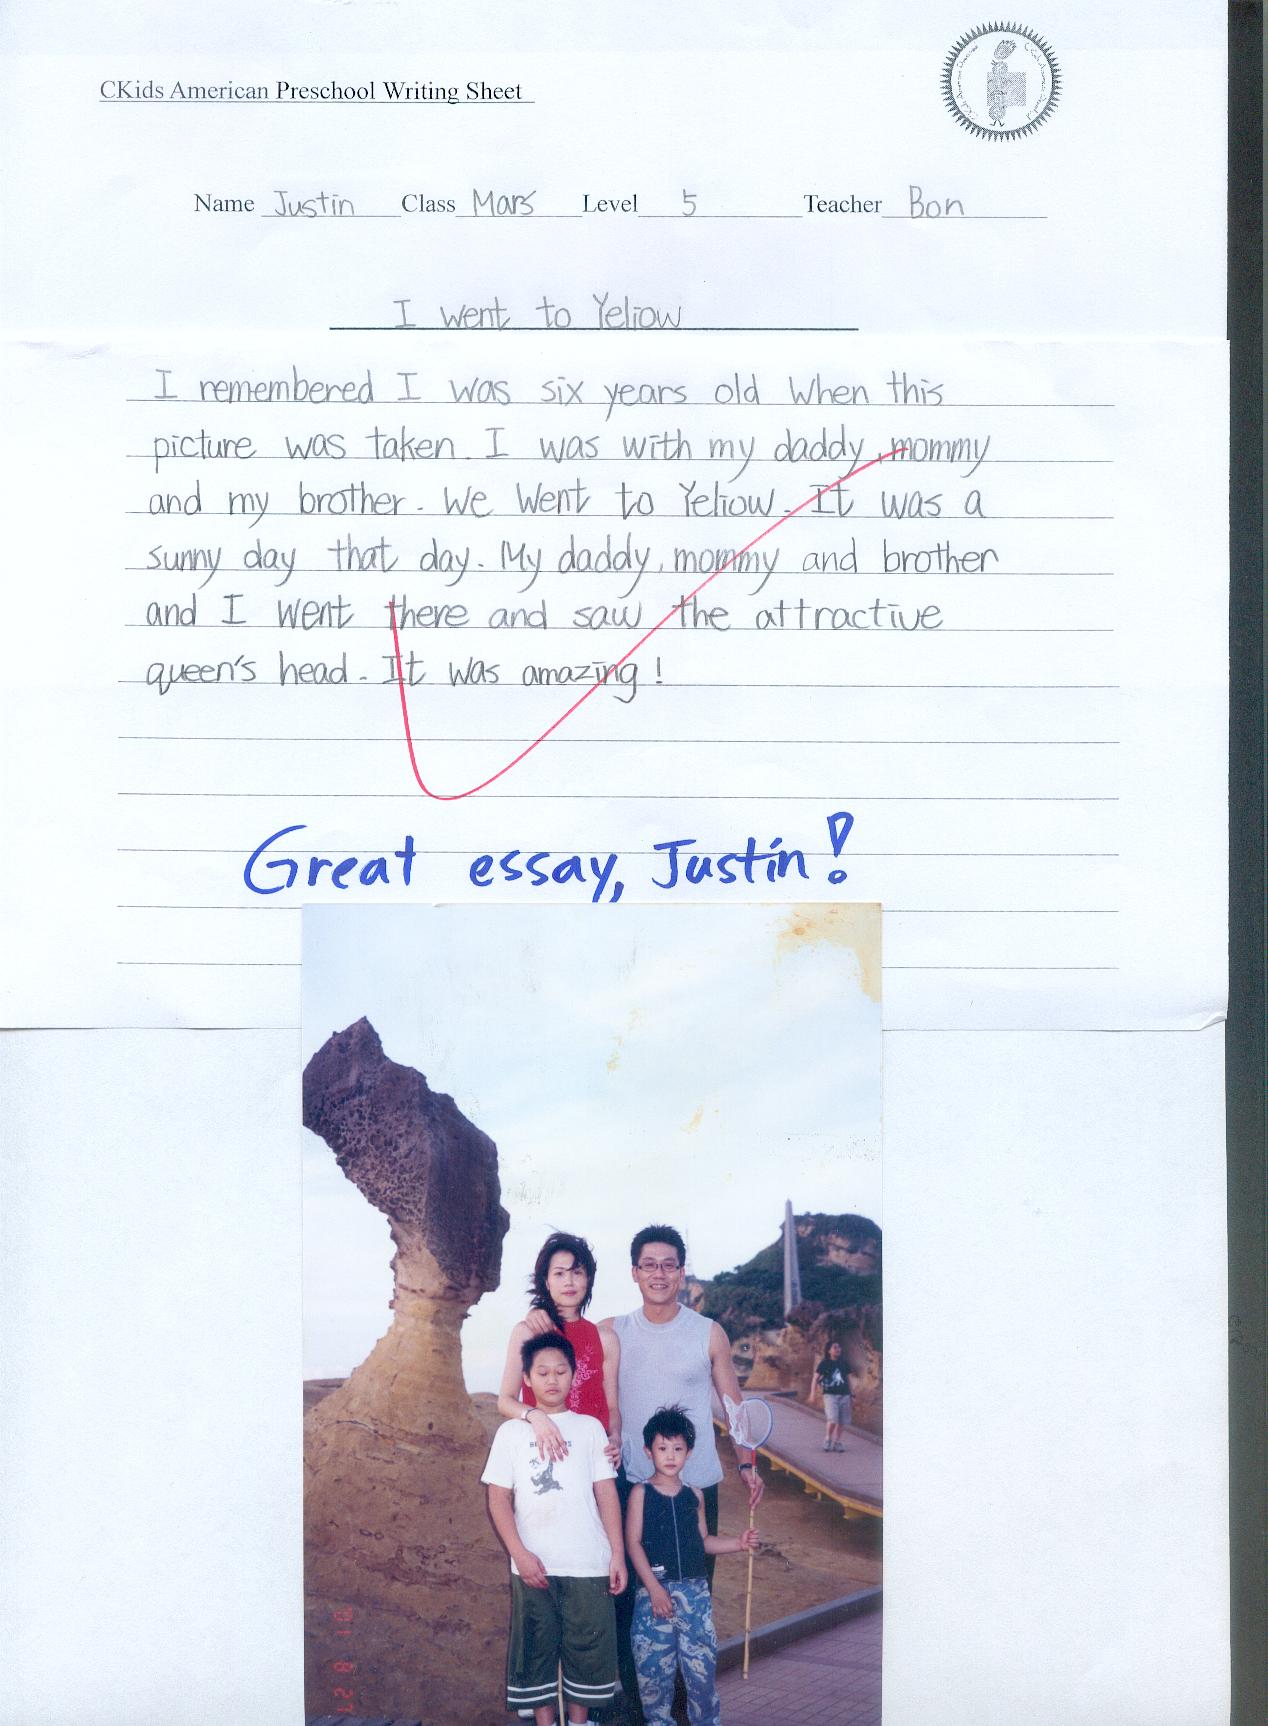 CKids American Preschool Writing Sheet
Name Justin Class Mars Level 5 Teacher Bon
I went to Yeliow
I remembered I was six years old when this
picture was taken. I was with my daddy, mommy
and my brother. We went to Yeliow. It was a
sunny day that day. My daddy, mommy and brother
and I went there and saw the attractive
queen's head. It was amazing!
Great essay, Justin!